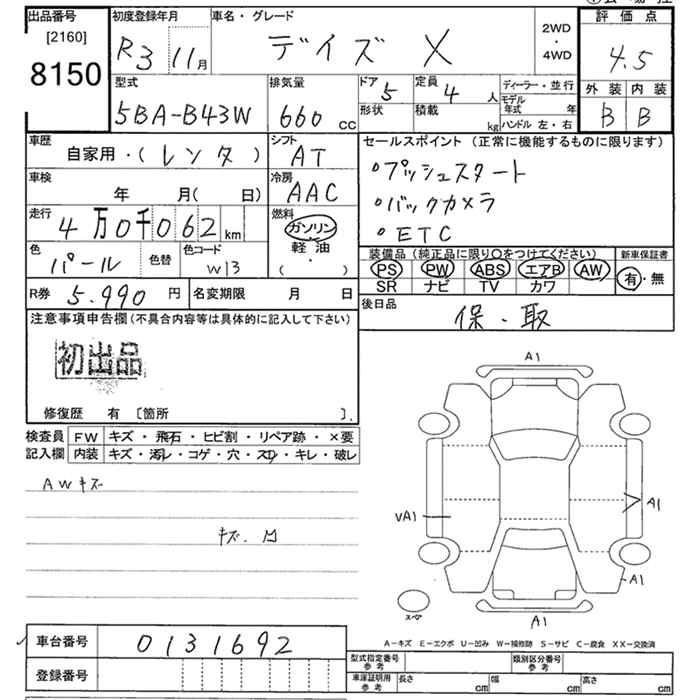 出品番号 初度登録年月 車名・グレード 評価点
[2160] R3 11月 デイズ X 2WD・4WD 4.5
8150
型式 排気量 ドア 定員 ディーラー・並行 外装 内装
5BA-B43W 660 CC 5 4人 モデル年式 年 B B
形状 積載 kg ハンドル 左・右
車歴 シフト セールスポイント (正常に機能するものに限ります)
自家用・(レンタ) AT
車検 冷房 °プッシュスタート
年 月(日) AAC
走行 燃料 °バックカメラ
4万0千062km ガソリン °ETC
色 色替 色コード 軽油 装備品(純正品に限り○をつけてください) 新車保証書
パール W13 (・) PS PW ABS エアB AW 有・無
SR ナビ TV カワ
R券 5.990円 名変期限 月 日 後日品
保・取
注意事項申告欄(不具合内容等は具体的に記入して下さい)
初出品
修復歴 有 [箇所 ].
検査員 FW キズ・飛石・ヒビ割・リペア跡・×要
記入欄 内装 キズ・汚レ・コゲ・穴・スレ・キレ・破レ
AWキズ
キズ.凹
A1
VA1
A1
A1
スペア
A1
A-キズ E-エクボ U-凹み W-補修跡 S-サビ C-腐食 XX-交換済
車台番号 0131692
型式指定番号 参考 類別区分番号 参考
登録番号 車庫証明用 参考 長さ cm 幅 cm 高さ cm